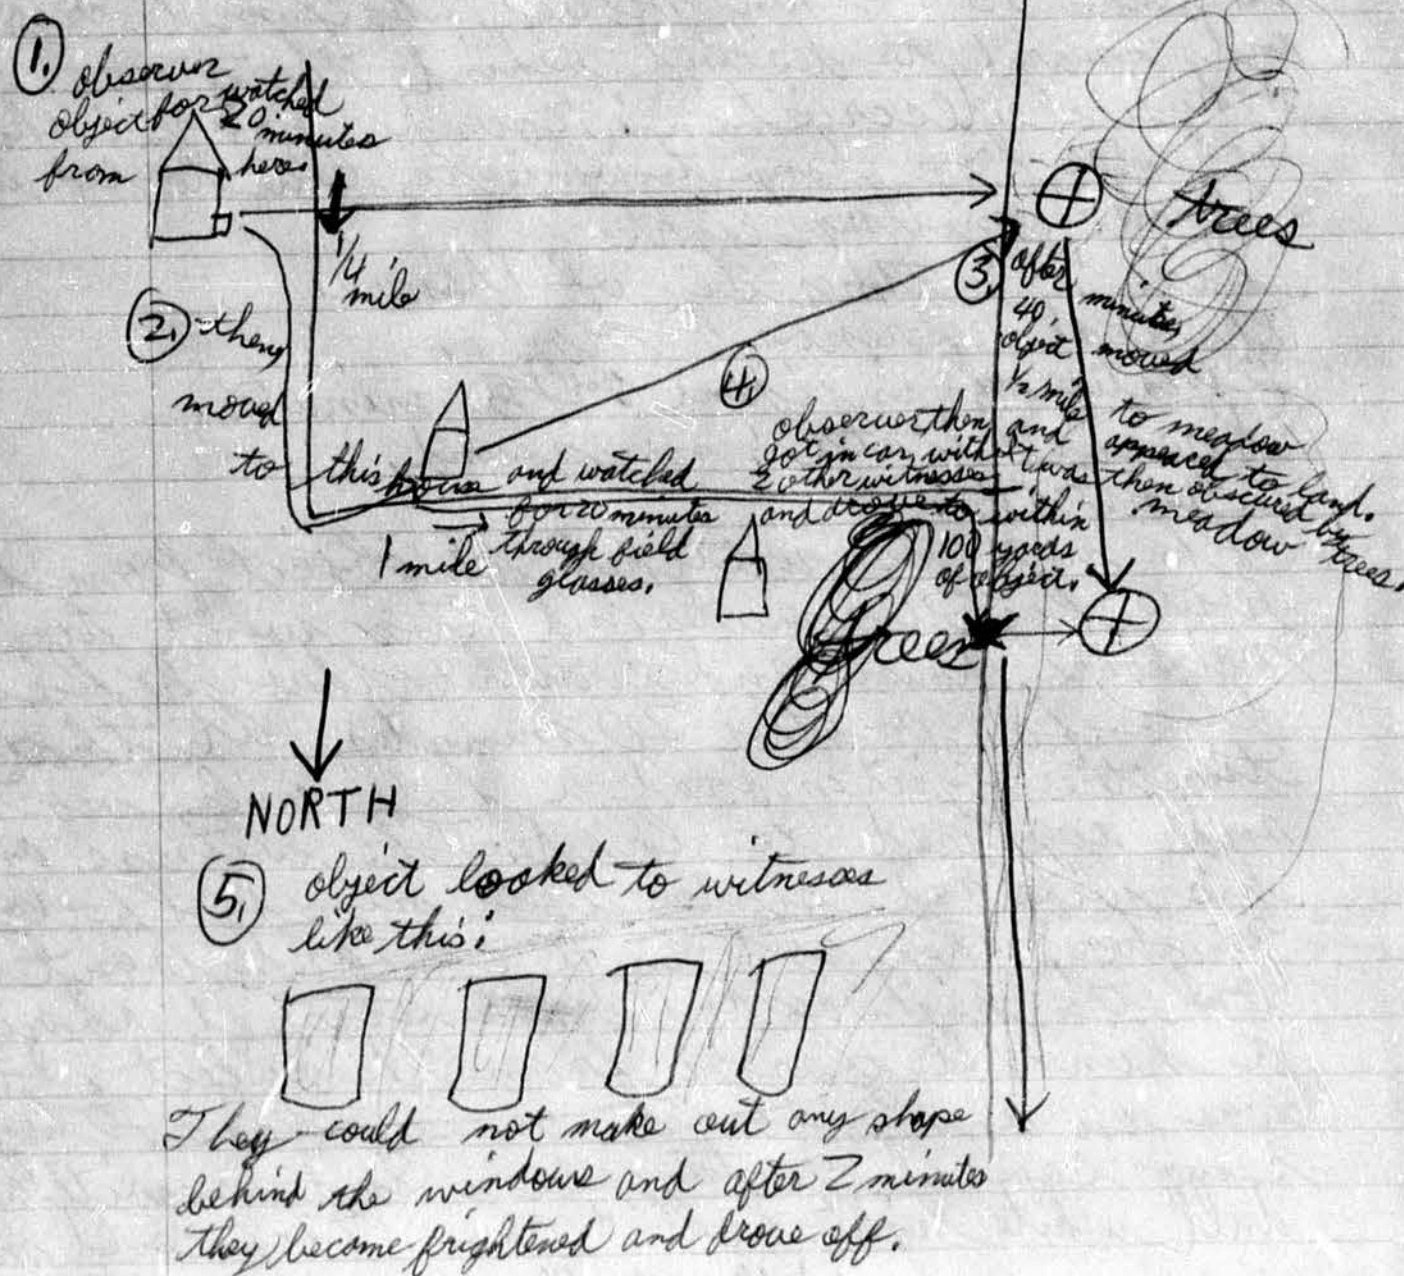 1.
observer
watched
object for 20
minutes
from
here.
1/4
mile
2. then
moved
to this house and watched
for 20 minutes
through field
glasses.
1 mile
trees
3. after
40 minutes,
object moved
1/2 mile
to meadow
and appeared to land.
it was then obscured by
meadow
trees.
4.
observer then
got in car with
2 other witnesses
and drove to within
100 yards
of object.
trees
NORTH
5. object looked to witnesses
like this:
They could not make out any shape
behind the windows and after 2 minutes
they become frightened and drove off.